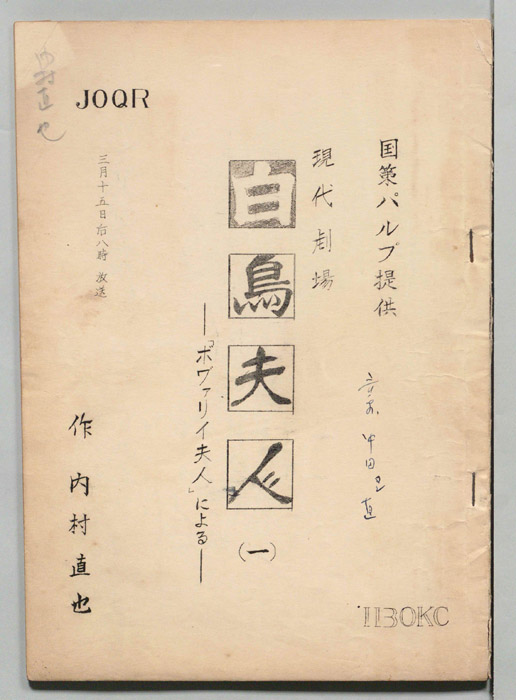 国策パルプ提供
現代劇場
白鳥夫人
(一)
―「ボヴァリイ夫人」による―
作 内村直也
三月十五日后八時 放送
JOQR
1130KC
内村直也